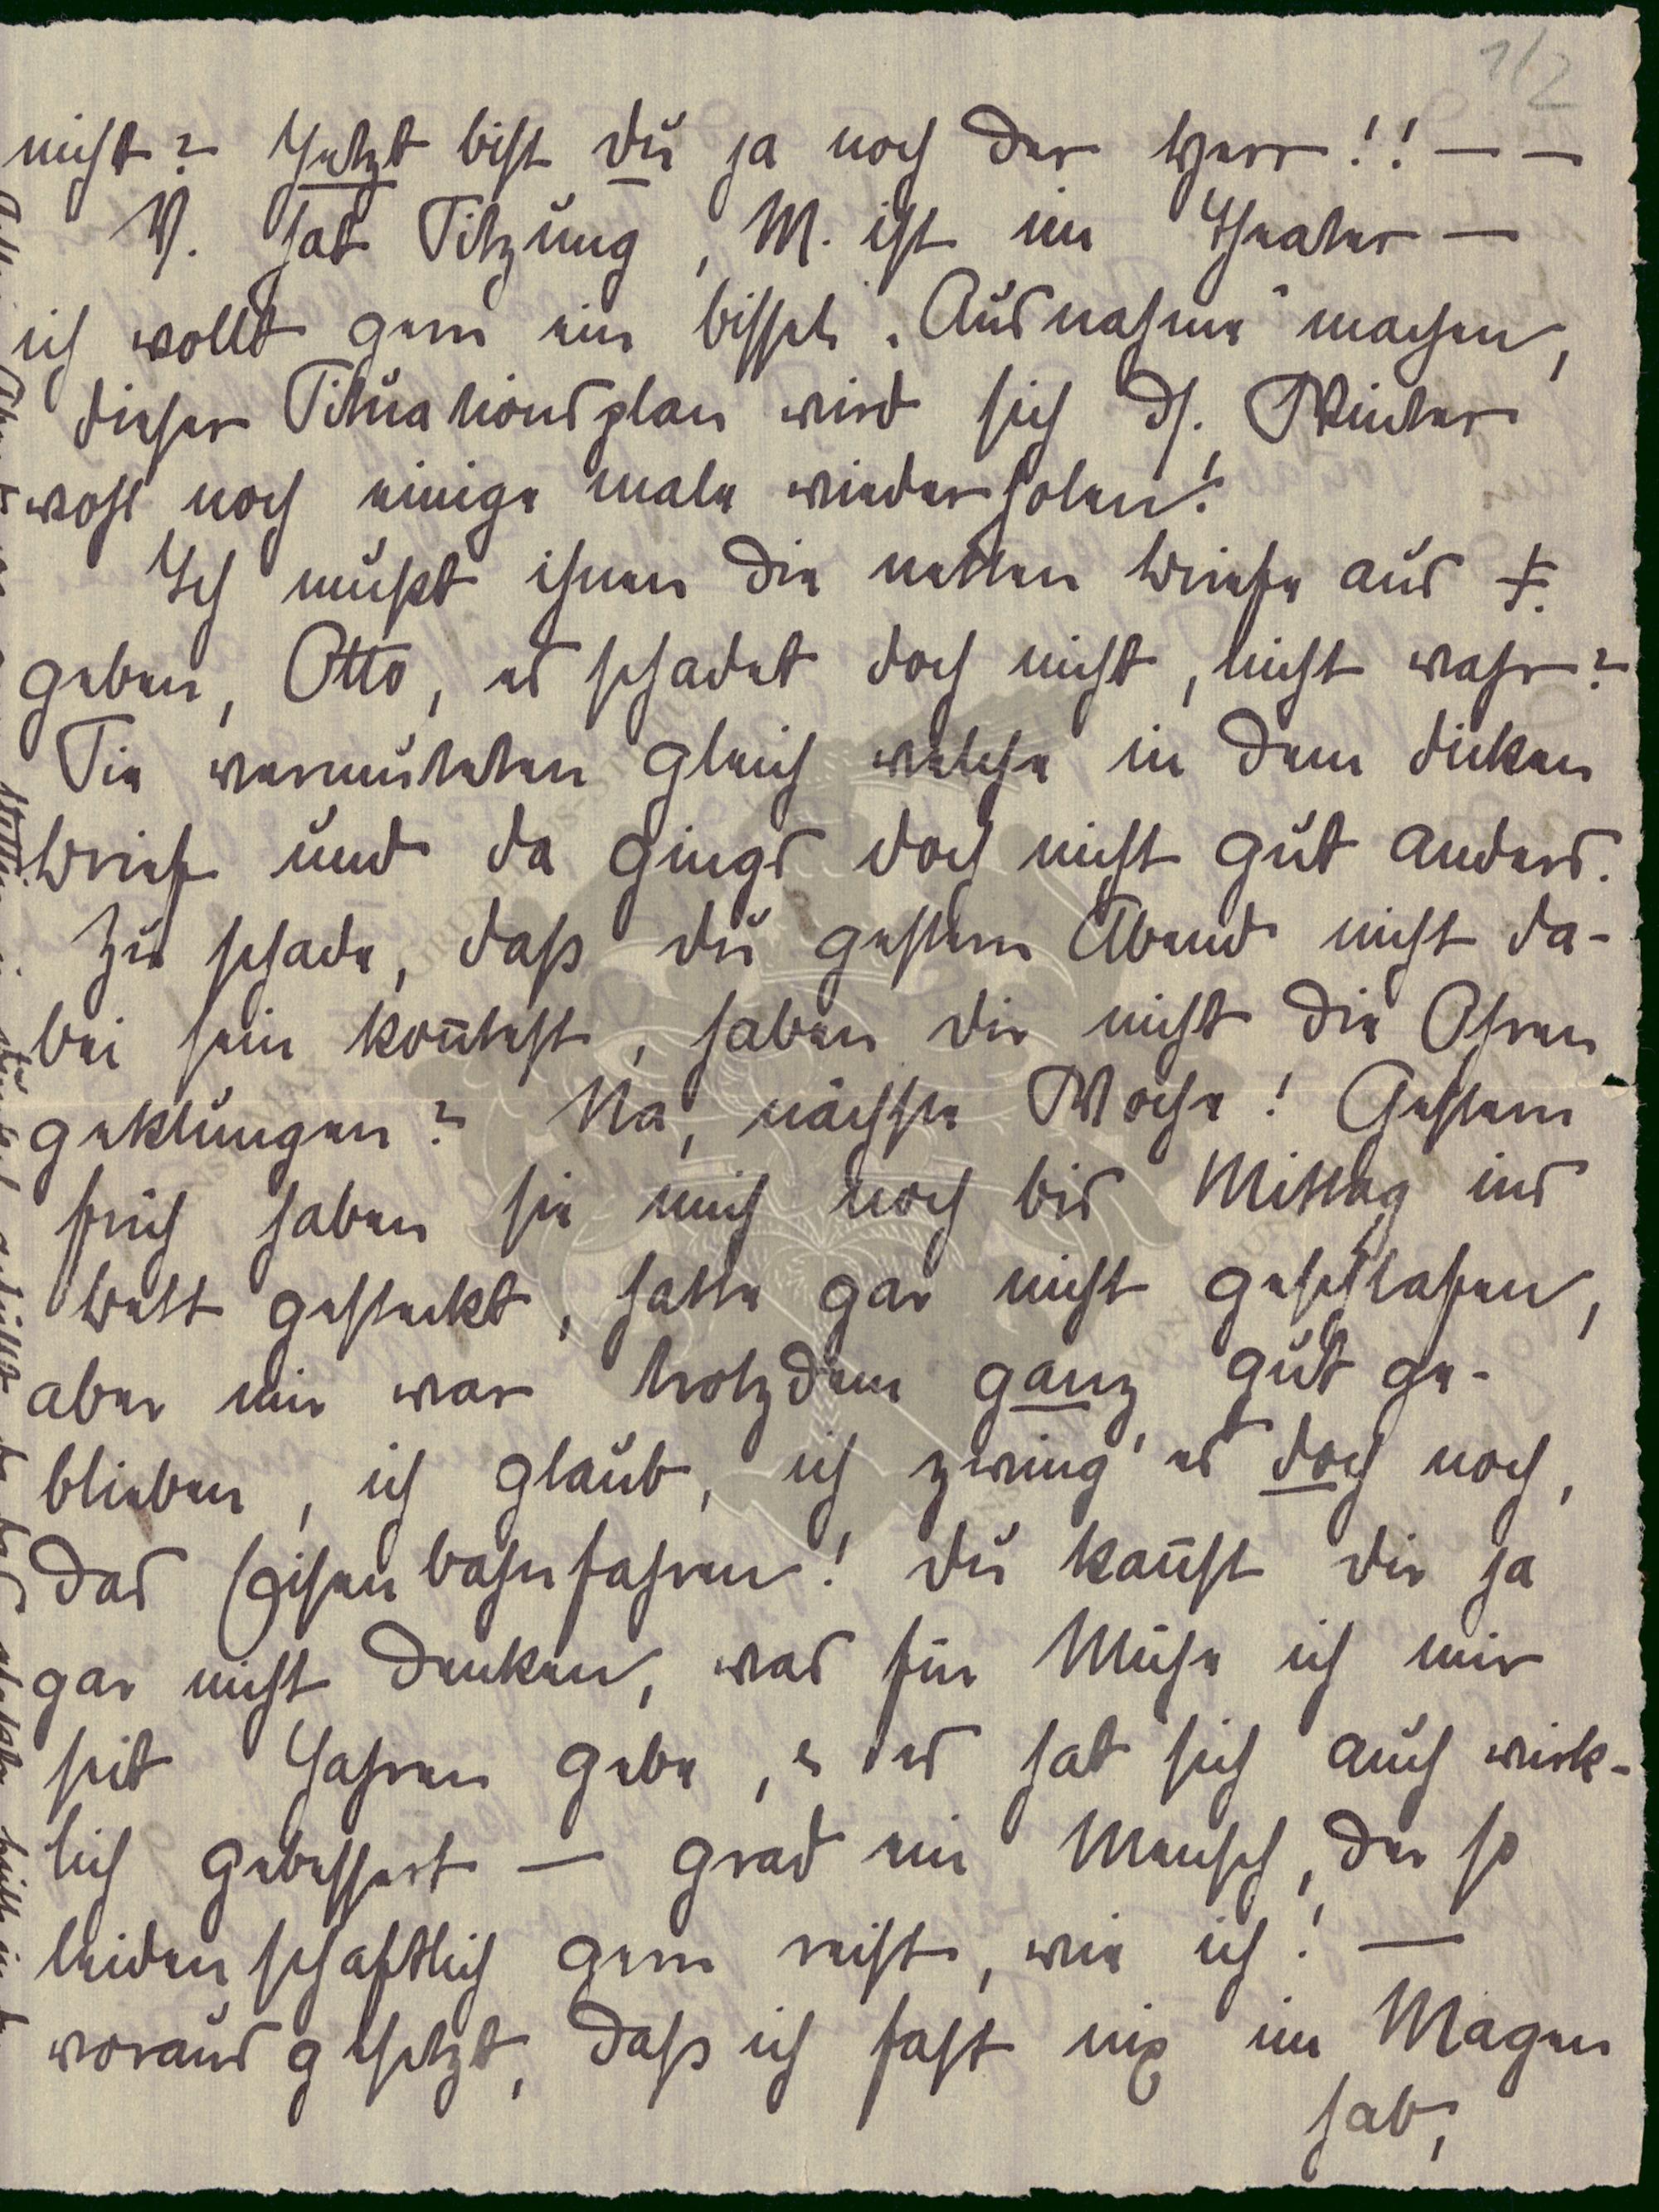 1/2
nicht? Jetzt bist du ja noch der Herr!! — —
V. hat Sitzung, M. ist im Theater —
ich wollt gern ein bissel „Ausnahme“ machen,
dieser Situationsplan wird sich ds. Winter
wohl noch einige male wiederholen!
Ich mußt ihnen die netten Briefe aus F.
geben, Otto, es schadet doch nicht, nicht wahr?
Sie vermuteten gleich welche in dem dicken
Brief und da gings doch nicht gut anders.
Zu schade, daß du gestern Abend nicht da-
bei sein kon̄test, haben dir nicht die Ohren
geklungen? Na, nächste Woche! Gestern
früh haben sie mich noch bis Mittag ins
Bett gesteckt, hatte gar nicht geschlafen,
aber mir war trotzdem ganz gut ge-
blieben, ich glaub, ich zwing' es doch noch,
das Eisenbahnfahren! Du kan̄st dir ja
gar nicht denken, was für Mühe ich mir
seit Jahren gebe, u es hat sich auch wirk-
lich gebessert — grad ein Mensch, der so
leidenschaftlich gern reist, wie ich! —
vorausgesetzt, daß ich fast nix im Magen
hab,